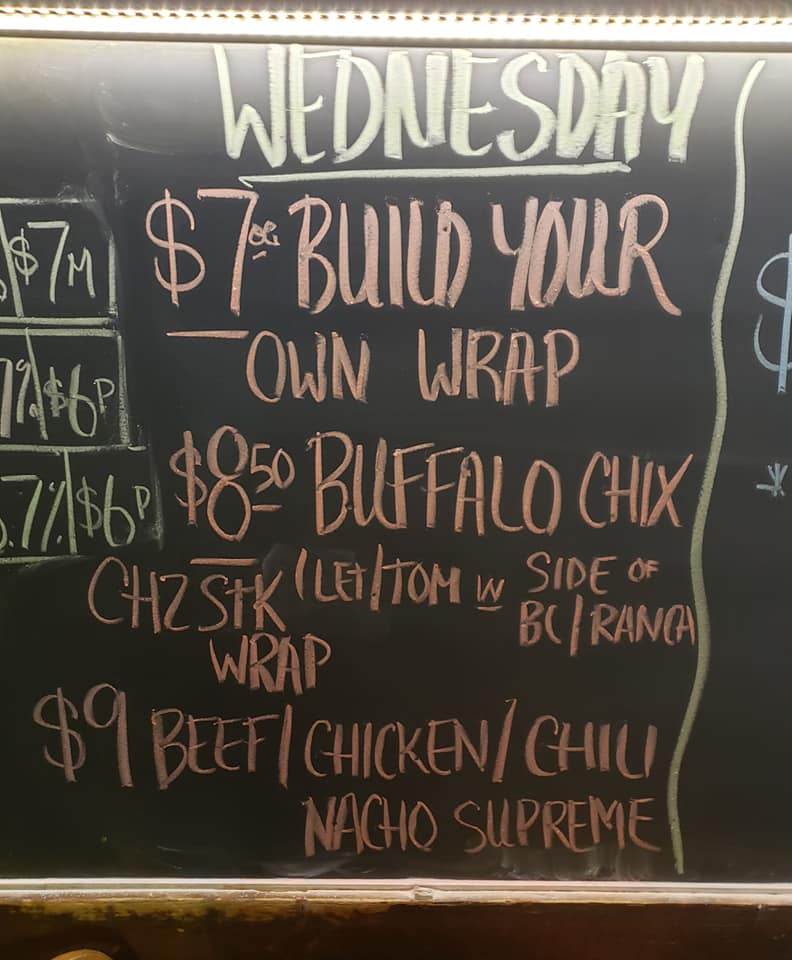 WEDNESDAY
$7 BUILD YOUR
OWN WRAP
$8.50 BUFFALO CHIX
CHZ STK / LET/TOM W SIDE OF
BC/RANCH
WRAP
$9 BEEF/CHICKEN/CHILI
NACHO SUPREME
$7M
7% $6P
.7% $6P
$
*